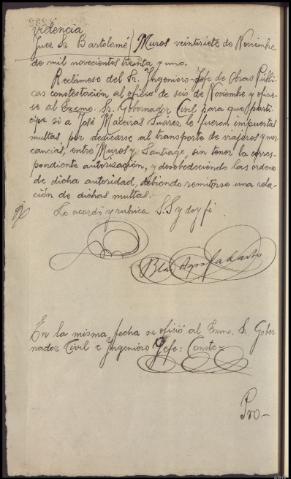 videncia
Juez Sr Bartolomé) Muros veintisiete de Noviembre
de mil novecientos treinta y uno.
Reclámese del Sr. Ingeniero-Jefe de Obras Públi
cas contestación al oficio de seis de Noviembre y oficie-
se al Excmo. Sr. Gobernador Civil para que parti-
cipe si a José Malvar Suárez le fueron impuestas
multas por dedicarse al transporte de viajeros y mer
cancías, entre Muros y Santiago, sin tener la corres-
pondiente autorización, y desobedeciendo las órdenes
de dicha autoridad, debiendo remitirse una rela-
ción de dichas multas.
Lo acordó y rubrica S.S. y doy fé
En la misma fecha se ofició al Excmo. S. Gober
nador Civil e Ingeniero Jefe: Consta-
Pro-